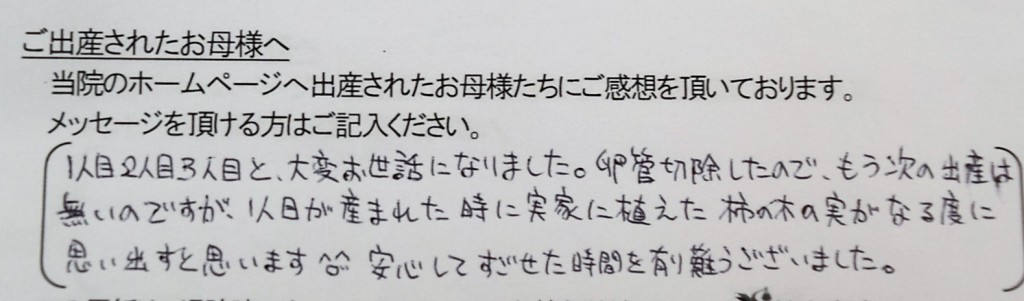 ご出産されたお母様へ
当院のホームページへ出産されたお母様たちにご感想を頂いております。
メッセージを頂ける方はご記入ください。
1人目2人目3人目と、大変お世話になりました。卵管切除したので、もう次の出産は
無いのですが、1人目が産まれた時に実家に植えた柿の木の実がなる度に
思い出すと思います^^ 安心してすごせた時間を有り難うございました。